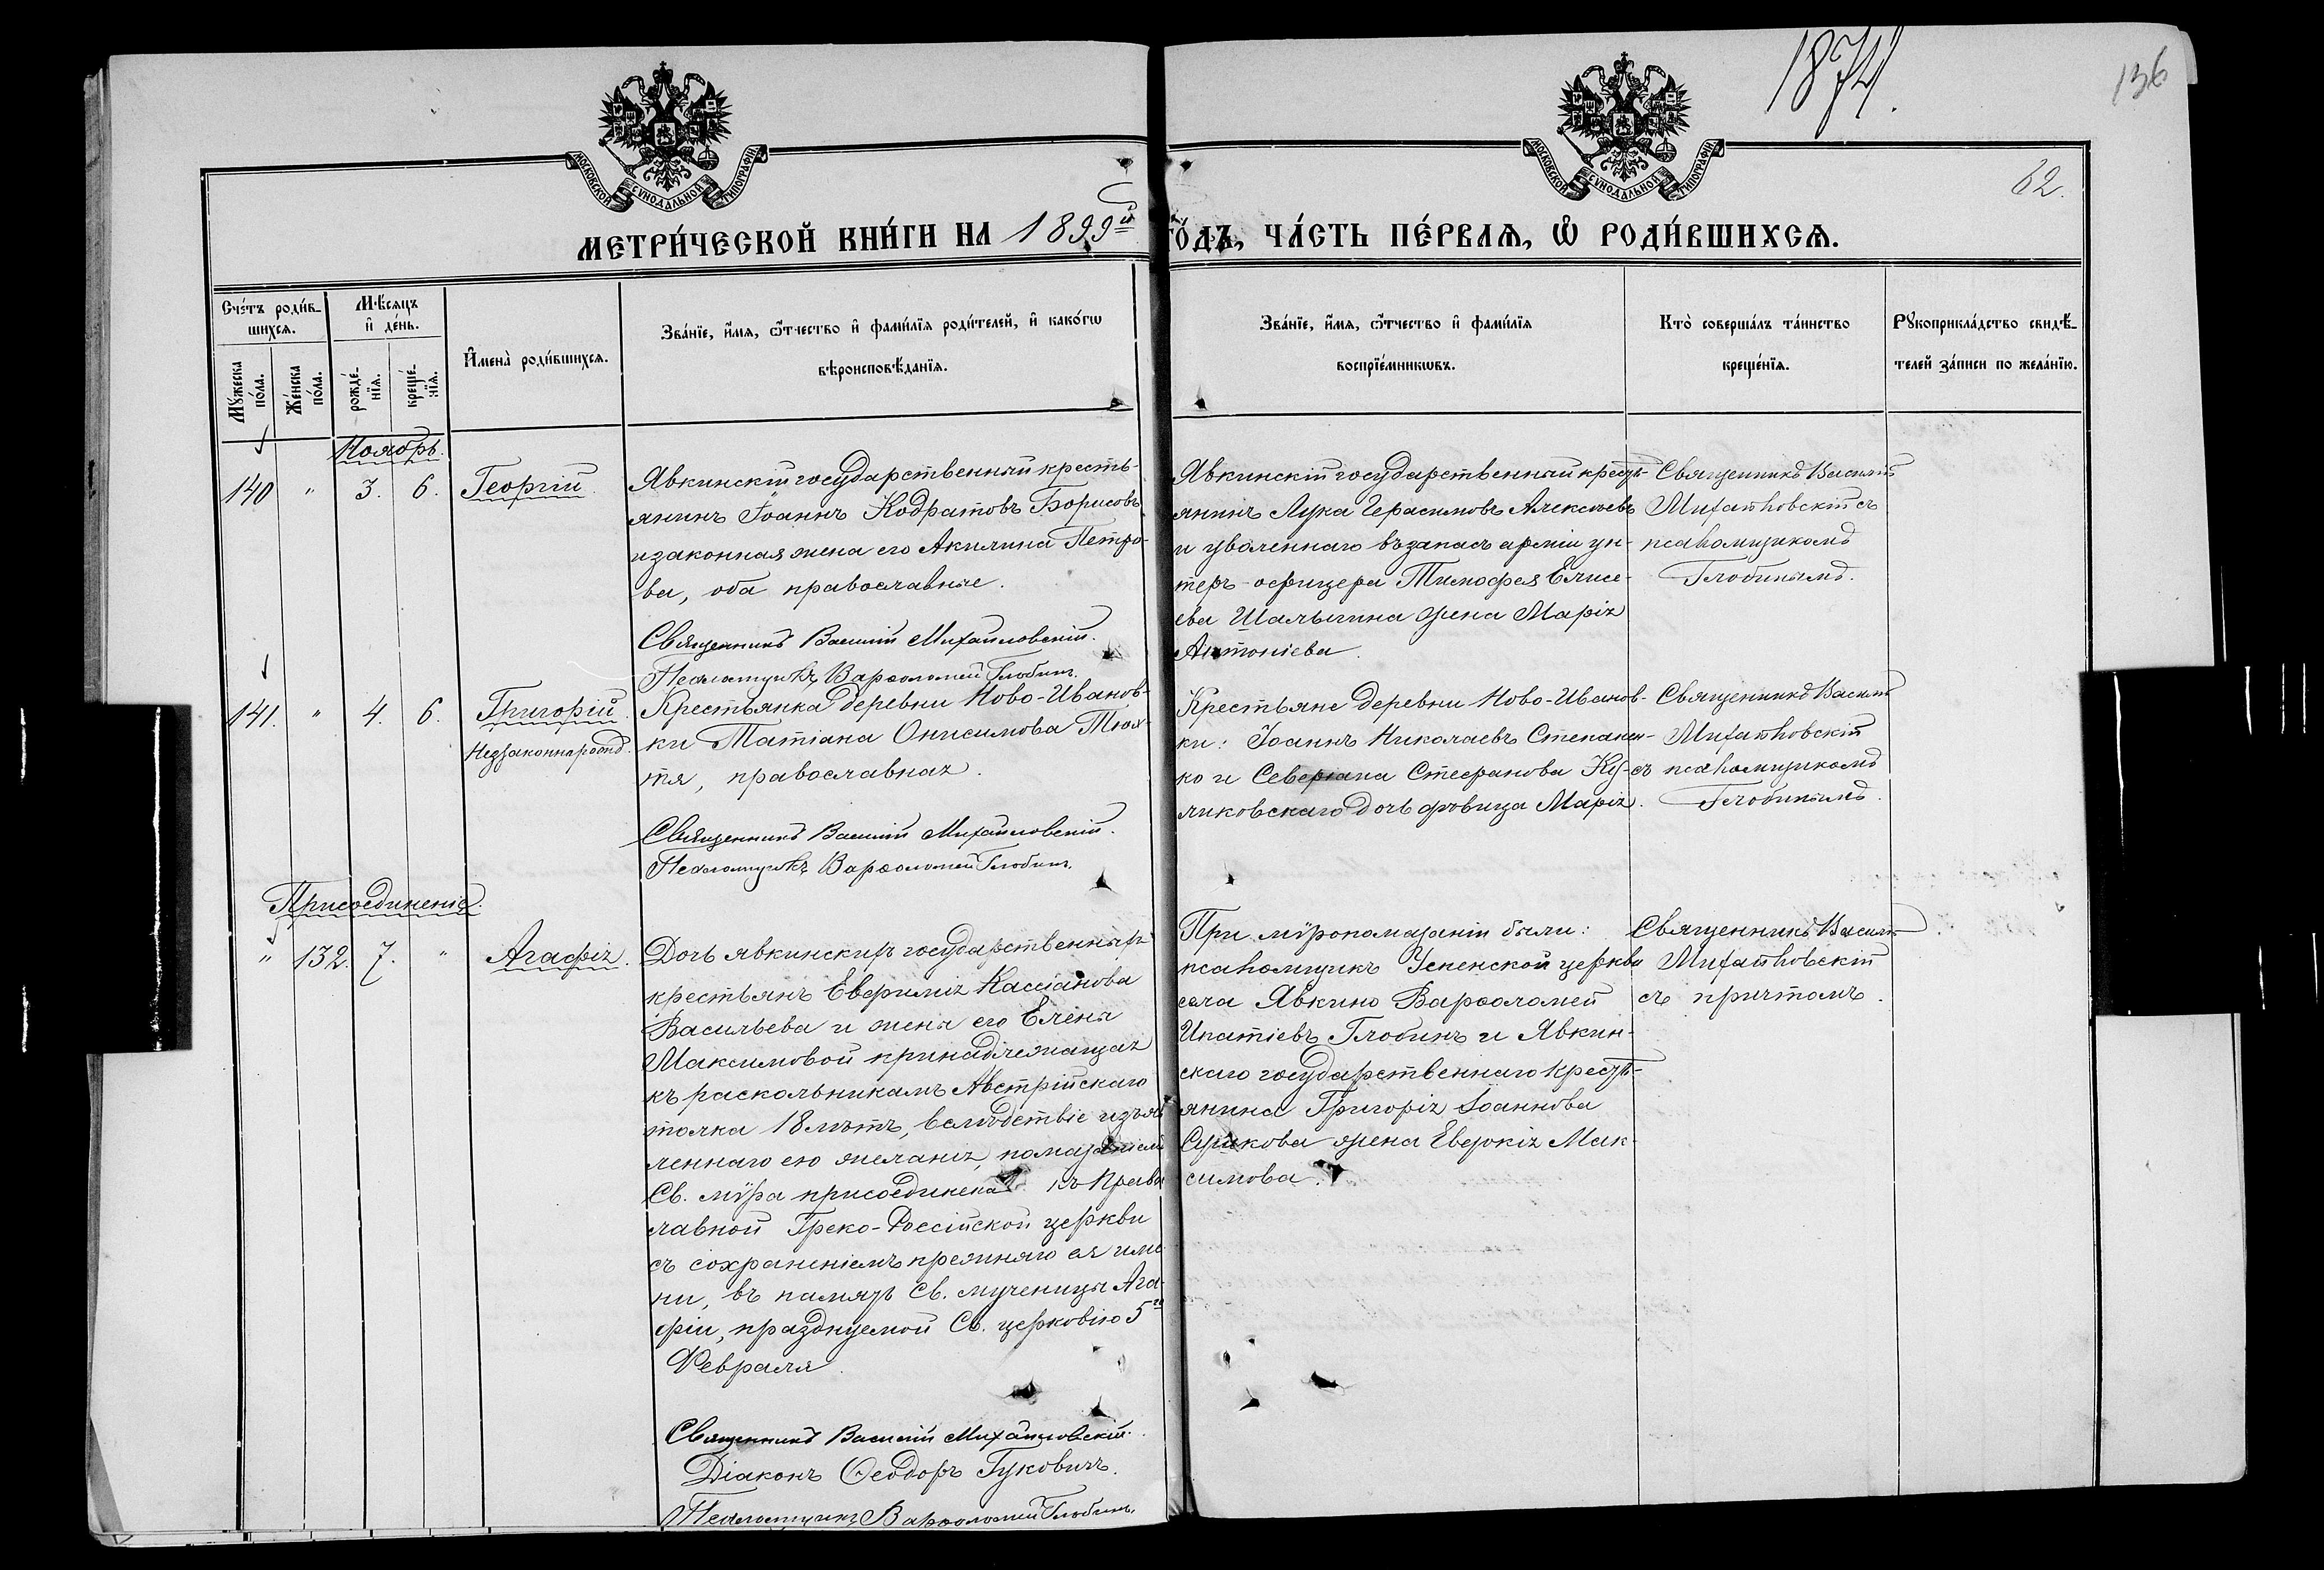 1874.
136
62.
МОСКОВСКОЙ СѴНОДАЛЬНОЙ ТИПОГРАФІИ
МОСКОВСКОЙ СѴНОДАЛЬНОЙ ТИПОГРАФІИ
МЕТРИ́ЧЕСКОЙ КНИ́ГИ НА 1899й ГО́ДЪ, ЧА́СТЬ ПЕ́РВАѦ, Ѿ РОДИ́ВШИХСѦ.
Сче́тъ роди́в-
шихсѧ.
Мꙋ́жеска
по́ла.
Же́нска
по́ла.
Мѣ́сѧцъ
и҆ де́нь.
рожде́-
нїѧ.
креще́-
нїѧ.
И҆мена̀ роди́вшихсѧ.
Зва́нїе, и҆́мѧ, ѻ҆́тчество и҆ фами́лїѧ роди́телей, и҆ како́гѡ
вѣроисповѣ́данїѧ.
Зва́нїе, и҆́мѧ, ѻ҆́тчество и҆ фами́лїѧ
воспрїе́мникѡвъ.
Кто̀ соверша́лъ та́инство
креще́нїѧ.
Рꙋкоприкла́дство свидѣ́-
телей за́писи по жела́нїю.
Ноябрь.
140 " 3. 6. Георгій.
Явкинскій государственный кресть-
янинъ Іоаннъ Кодратовъ Борисовъ
и законная жена его Акилина Петро-
ва, оба православные.
Священникъ Василій Михайловскій.
Псаломщикъ Варѳоломей Глобинъ.
Явкинскій государственный кресть-
янинъ Лука Герасимовъ Алексѣевъ
и уволеннаго въ запасъ арміи ун-
теръ-офицера Тимофея Елисе-
ева Шалыгина жена Марія
Антоніева
Священникъ Василій
Михайловскій съ
псаломщикомъ
Глобинымъ.
141. " 4. 6. Григорій.
Незаконнорожд.
Крестьянка деревни Ново-Иванов-
ки Татіана Онисимова Тюх-
тя, православная.
Священникъ Василій Михайловскій.
Псаломщикъ Варѳоломей Глобинъ.
Крестьяне деревни Ново-Иванов-
ки: Іоаннъ Николаевъ Степанен-
ко и Северіана Стефанова Ку-
ликовскаго дочь дѣвица Марія.
Священникъ Василій
Михайловскій
съ псаломщикомъ
Глобинымъ.
Присоединенія.
" 132. 7. " Агафія.
Дочь явкинскихъ государственныхъ
крестьянъ Евфимія Кассіанова
Васильева и жены его Елены
Максимовой принадлежащая
къ раскольникамъ Австрійскаго
толка 18 лѣтъ, вслѣдствіе изъяв
леннаго ею желанія, помазаніемъ
Св. мѵра присоединена къ Право
лавной Греко-Россійской церкви
съ сохраненіемъ прежняго ея име
ни, въ память Св. мученицы Ага-
фіи, празднуемой Св. церковію 5го
Февраля.
Священникъ Василій Михайловскій.
Діаконъ Ѳеодоръ Гуковичъ.
Псаломщикъ Варѳоломей Глобинъ.
При мѵропомазаніи были:
псаломщикъ Успенской церкви
села Явкино Варѳоломей
Ипатіевъ Глобинъ и Явкин-
скаго государственнаго кресть-
янина Григорія Іоаннова
жена Евдокія Мак-
симова.
Священникъ Василій
Михайловскій
съ причтомъ.